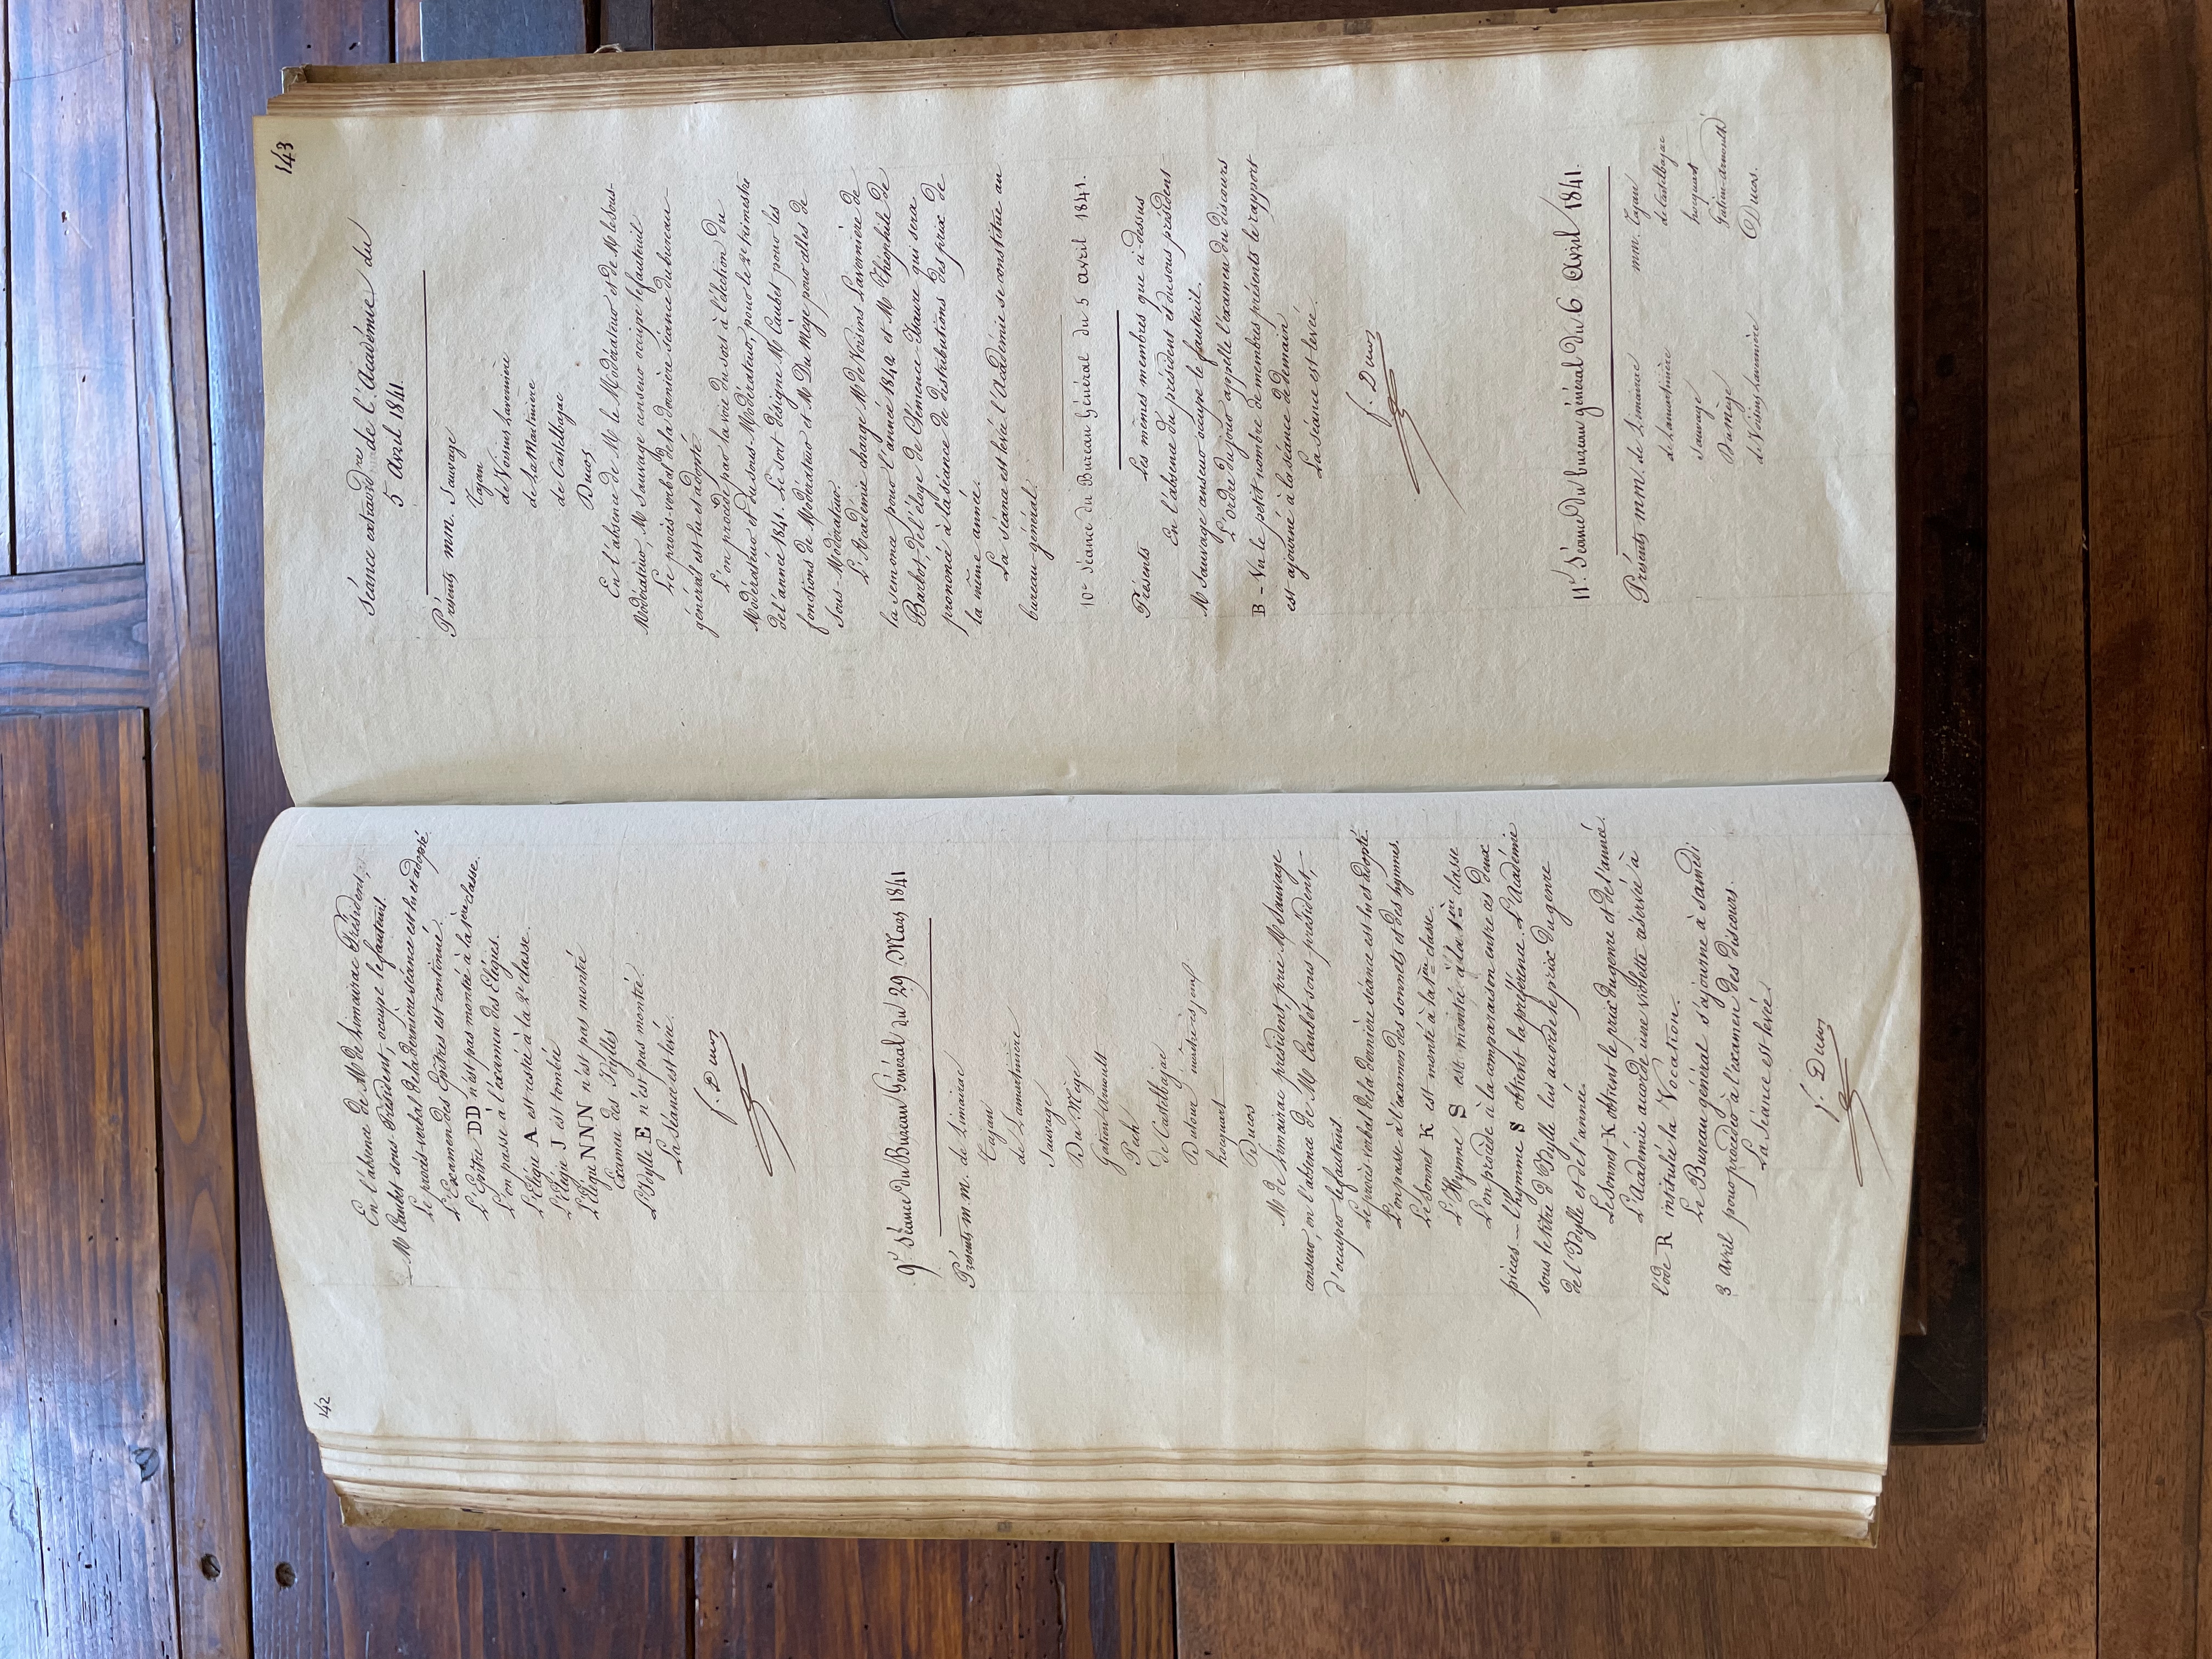 142
En l'absence de Mr de Limairac Président,
— Mr Caubet sous-Président, occupe le fauteuil.
Le procès-verbal de la dernière séance est lu et adopté
L'Examen des Epitres est continué.
L'Epitre DD n'est pas montée à la 1ère classe.
L'on passe à l'examen des Elégies.
L'Elégie A est restée à la 2e classe.
L'Elégie J est tombée
L'Elégie NNN n'est pas montée
Examen des Idylles
L'Idylle E n'est pas montée.
La Séance est levée.
f. Ducos
9e Séance du Bureau Général du 29 Mars 1841
Présents m.m. de Limairac
Tajan
de Lamartinière
Sauvage
Du Mège
Gatien-Arnoult
Pech
de Castelbajac
Dutour, maître ès jeux
hocquart
Ducos
Mr de Limairac président, prie Mr Sauvage
censeur, en l'absence de Mr Caubet sous-président,
d'occuper le fauteuil
Le procès-verbal de la dernière séance est lu et adopté.
L'on passe à l'examen des sonnets et des hymnes.
Le Sonnet K est monté à la 1ère classe.
L'Hymne S est montée à la 1ère classe
L'on procède à la comparaison entre ces deux
pièces — l'hymne S obtient la préférence. L'Académie
sous le titre d'Idylle lui accorde le prix du genre
de l'Idylle et de l'année.
Le Sonnet K obtient le prix du genre et de l'année.
L'Académie accorde une violette réservée à
l'ode R intitulée la Vocation.
Le Bureau général s'ajourne à samedi
3 avril pour procéder à l'examen des discours.
La Séance est levée.
f. Ducos
143
Séance extraordre de l'Académie du
5 Avril 1841.
Présents mm. Sauvage
Tajan
de Voisins Lavernière
de La Martinière
de Castelbajac
Ducos
En l'absence de Mr le Modérateur et de Mr le sous-
Modérateur, Mr Sauvage censeur occupe le fauteuil
Le procès-verbal de la dernière séance du bureau
général est lu et adopté.
L'on procède par la voie du sort à l'élection du
Modérateur et du sous-Modérateur, pour le 2e trimestre
de l'année 1841. Le sort désigne Mr Caubet pour les
fonctions de Modérateur et Mr Du Mège pour celles de
Sous-Modérateur.
L'Académie charge Mr de Voisins Lavernière de
la semonce pour l'année 1842 et Mr Théophile de
Barbot, de l'éloge de Clémence-Isaure qui sera
prononcé à la séance de distributions des prix de
la même année.
La séance est levée l'Académie se constitue au
bureau-général.
10e Séance du Bureau Général du 5 avril 1841.
Présents Les mêmes membres que ci-dessus
En l'absence du président et du sous président
Mr Sauvage censeur occupe le fauteuil.
L'ordre du jour appelle l'examen du discours
B - Vu le petit nombre de membres présents le rapport
est ajourné à la séance de demain
La séance est levée.
f. Ducos
11e Séance du bureau général du 6 Avril 1841.
Présents mm. de Limairac mm. Tajan
de Lamartinière de Castelbajac
Sauvage hocquart
Dumège Gatien-Arnoult
de Voisins Lavernière Ducos.